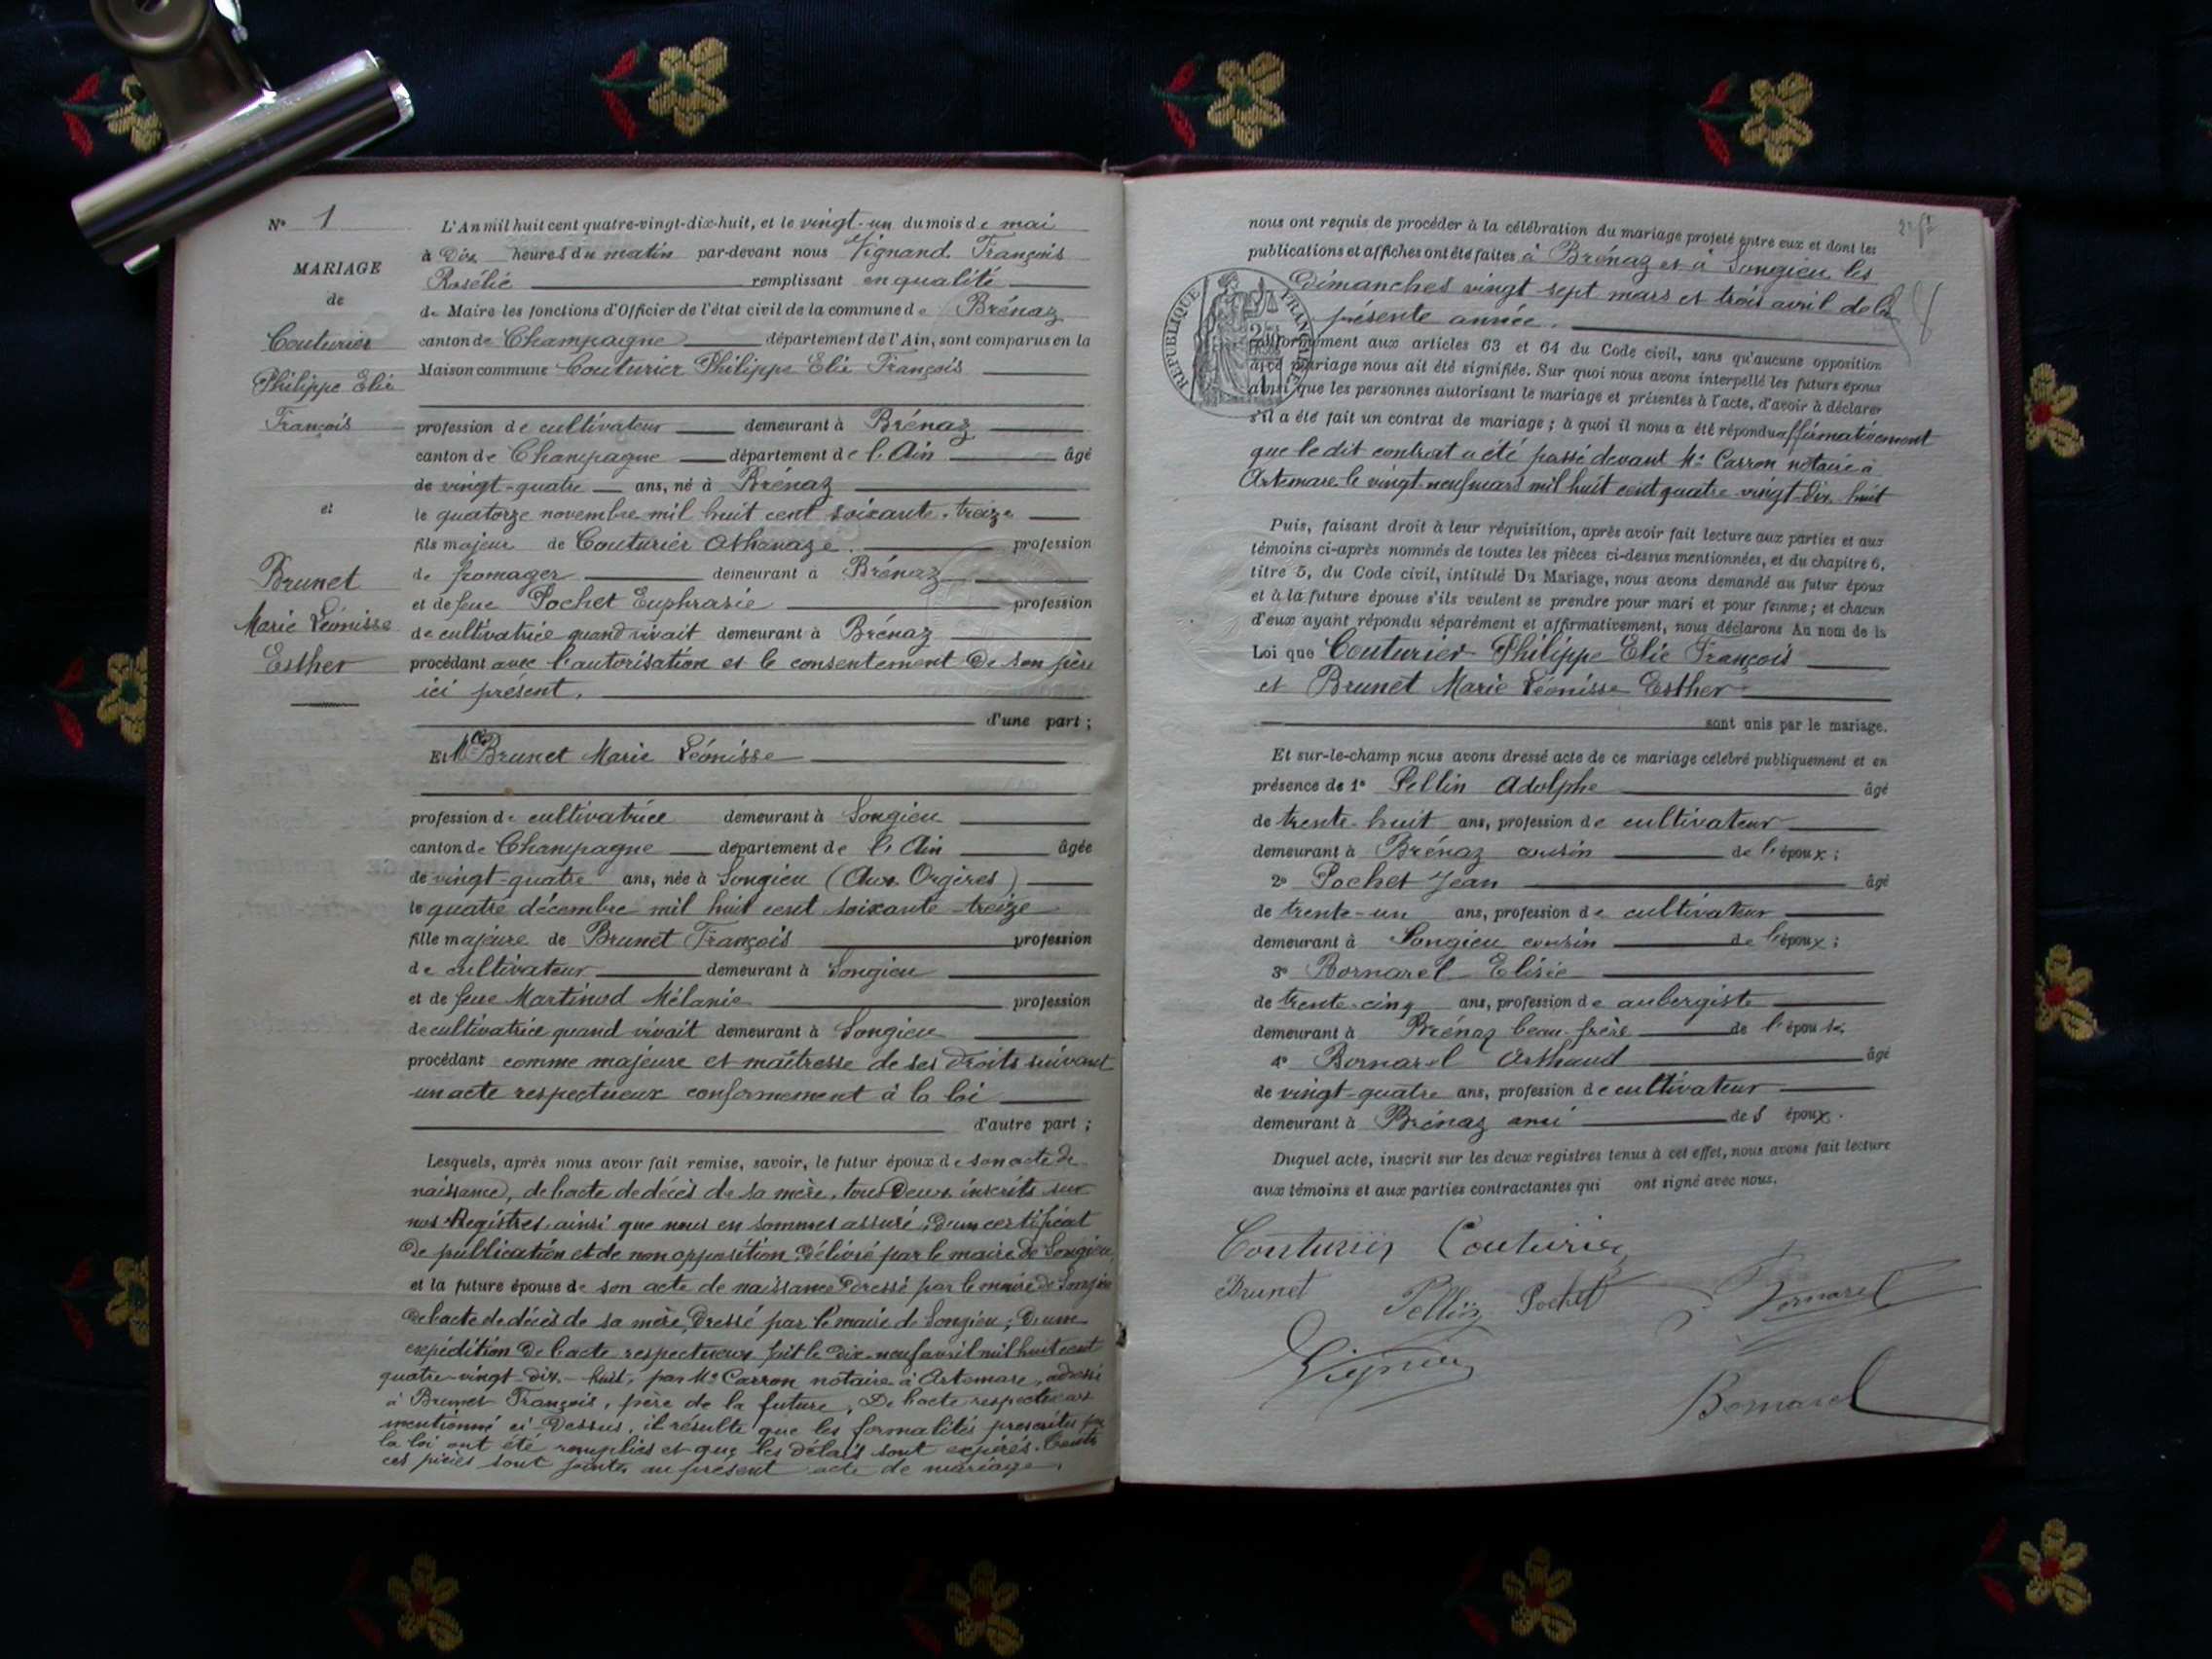 N° 1
MARIAGE
de
Couturier
Philippe Elie
François
et
Brunet
Marie Léonisse
Esther
L'An mil huit cent quatre-vingt-dix-huit, et le vingt-un du mois de mai
à Dix heures du matin par-devant nous Vignand François
Rosélie remplissant en qualité
de Maire les fonctions d'Officier de l'état civil de la commune de Brénaz
canton de Champagne département de l'Ain, sont comparus en la
Maison commune Couturier Philippe Elie François
profession de cultivateur demeurant à Brénaz
canton de Champagne département de l'Ain âgé
de vingt-quatre ans, né à Brénaz
le quatorze novembre mil huit cent soixante-treize
fils majeur de Couturier Athanaze profession
de fromager demeurant à Brénaz
et de feue Pochet Euphrasie profession
de cultivatrice quand vivait demeurant à Brénaz
procédant avec l'autorisation et le consentement de son père
ici présent.
d'une part ;
Et Brunet Marie Léonisse
profession de cultivatrice demeurant à Songieu
canton de Champagne département de l'Ain âgée
de vingt-quatre ans, née à Songieu (Aux Orgères)
le quatre décembre mil huit cent soixante-treize
fille majeure de Brunet François profession
de cultivateur demeurant à Songieu
et de feue Martinod Mélanie profession
de cultivatrice quand vivait demeurant à Songieu
procédant comme majeure et maîtresse de ses droits suivant
un acte respectueux conformement à la loi
d'autre part ;
Lesquels, après nous avoir fait remise, savoir, le futur époux de son acte de
naissance, de l'acte de décès de sa mère, tous Deux inscrits sur
nos Registres ainsi que nous en sommes assuré, d'un certificat
de publication et de non opposition délivré par le maire de Songieu,
et la future épouse de son acte de naissance dressé par le maire de Songieu
de l'acte de décès de sa mère, dressé par le maire de Songieu ; D'une
expédition de l'acte respectueux fait le dix-neuf avril mil huit cent
quatre-vingt-dix-huit, par Me Carron notaire à Artemare, adressé
à Brunet François, père de la future. De l'acte respectueux
mentionné ci-Dessus, il résulte que les formalités prescrites par
la loi ont été remplies et que les délais sont expirés. Toutes
ces pièces sont jointes au présent acte de mariage.
nous ont requis de procéder à la célébration du mariage projeté entre eux et dont les
publications et affiches ont été faites à Brénaz et à Songieu les
dimanches vingt-sept mars et trois avril de la
présente année.
RÉPUBLIQUE FRANÇAISE
conformément aux articles 63 et 64 du Code civil, sans qu'aucune opposition
audit mariage nous ait été signifiée. Sur quoi nous avons interpellé les futurs époux
ainsi que les personnes autorisant le mariage et présentes à l'acte, d'avoir à déclarer
s'il a été fait un contrat de mariage ; à quoi il nous a été répondu affirmativement
que le dit contrat a été passé devant Me Carron notaire à
Artemare le vingt-neuf mars mil huit cent quatre-vingt-dix-huit
Puis, faisant droit à leur réquisition, après avoir fait lecture aux parties et aux
témoins ci-après nommés de toutes les pièces ci-dessus mentionnées, et du chapitre 6,
titre 5, du Code civil, intitulé Du Mariage, nous avons demandé au futur époux
et à la future épouse s'ils veulent se prendre pour mari et pour femme ; et chacun
d'eux ayant répondu séparément et affirmativement, nous déclarons Au nom de la
Loi que Couturier Philippe Elie François
et Brunet Marie Léonisse Esther
sont unis par le mariage.
Et sur-le-champ nous avons dressé acte de ce mariage célébré publiquement et en
présence de 1° Pellin Adolphe âgé
de trente-huit ans, profession de cultivateur
demeurant à Brénaz cousin de l'époux ;
2° Pochet Jean âgé
de trente-un ans, profession de cultivateur
demeurant à Songieu cousin de l'époux ;
3° Bornarel Elisée
de trente-cinq ans, profession de aubergiste
demeurant à Brénaz beau-frère de l'épouse
4° Bornarel Arthaud âgé
de vingt-quatre ans, profession de cultivateur
demeurant à Brénaz ami de s époux.
Duquel acte, inscrit sur les deux registres tenus à cet effet, nous avons fait lecture
aux témoins et aux parties contractantes qui ont signé avec nous.
Couturier Couturier
Brunet Pellin Pochet Bornarel
Bornarel